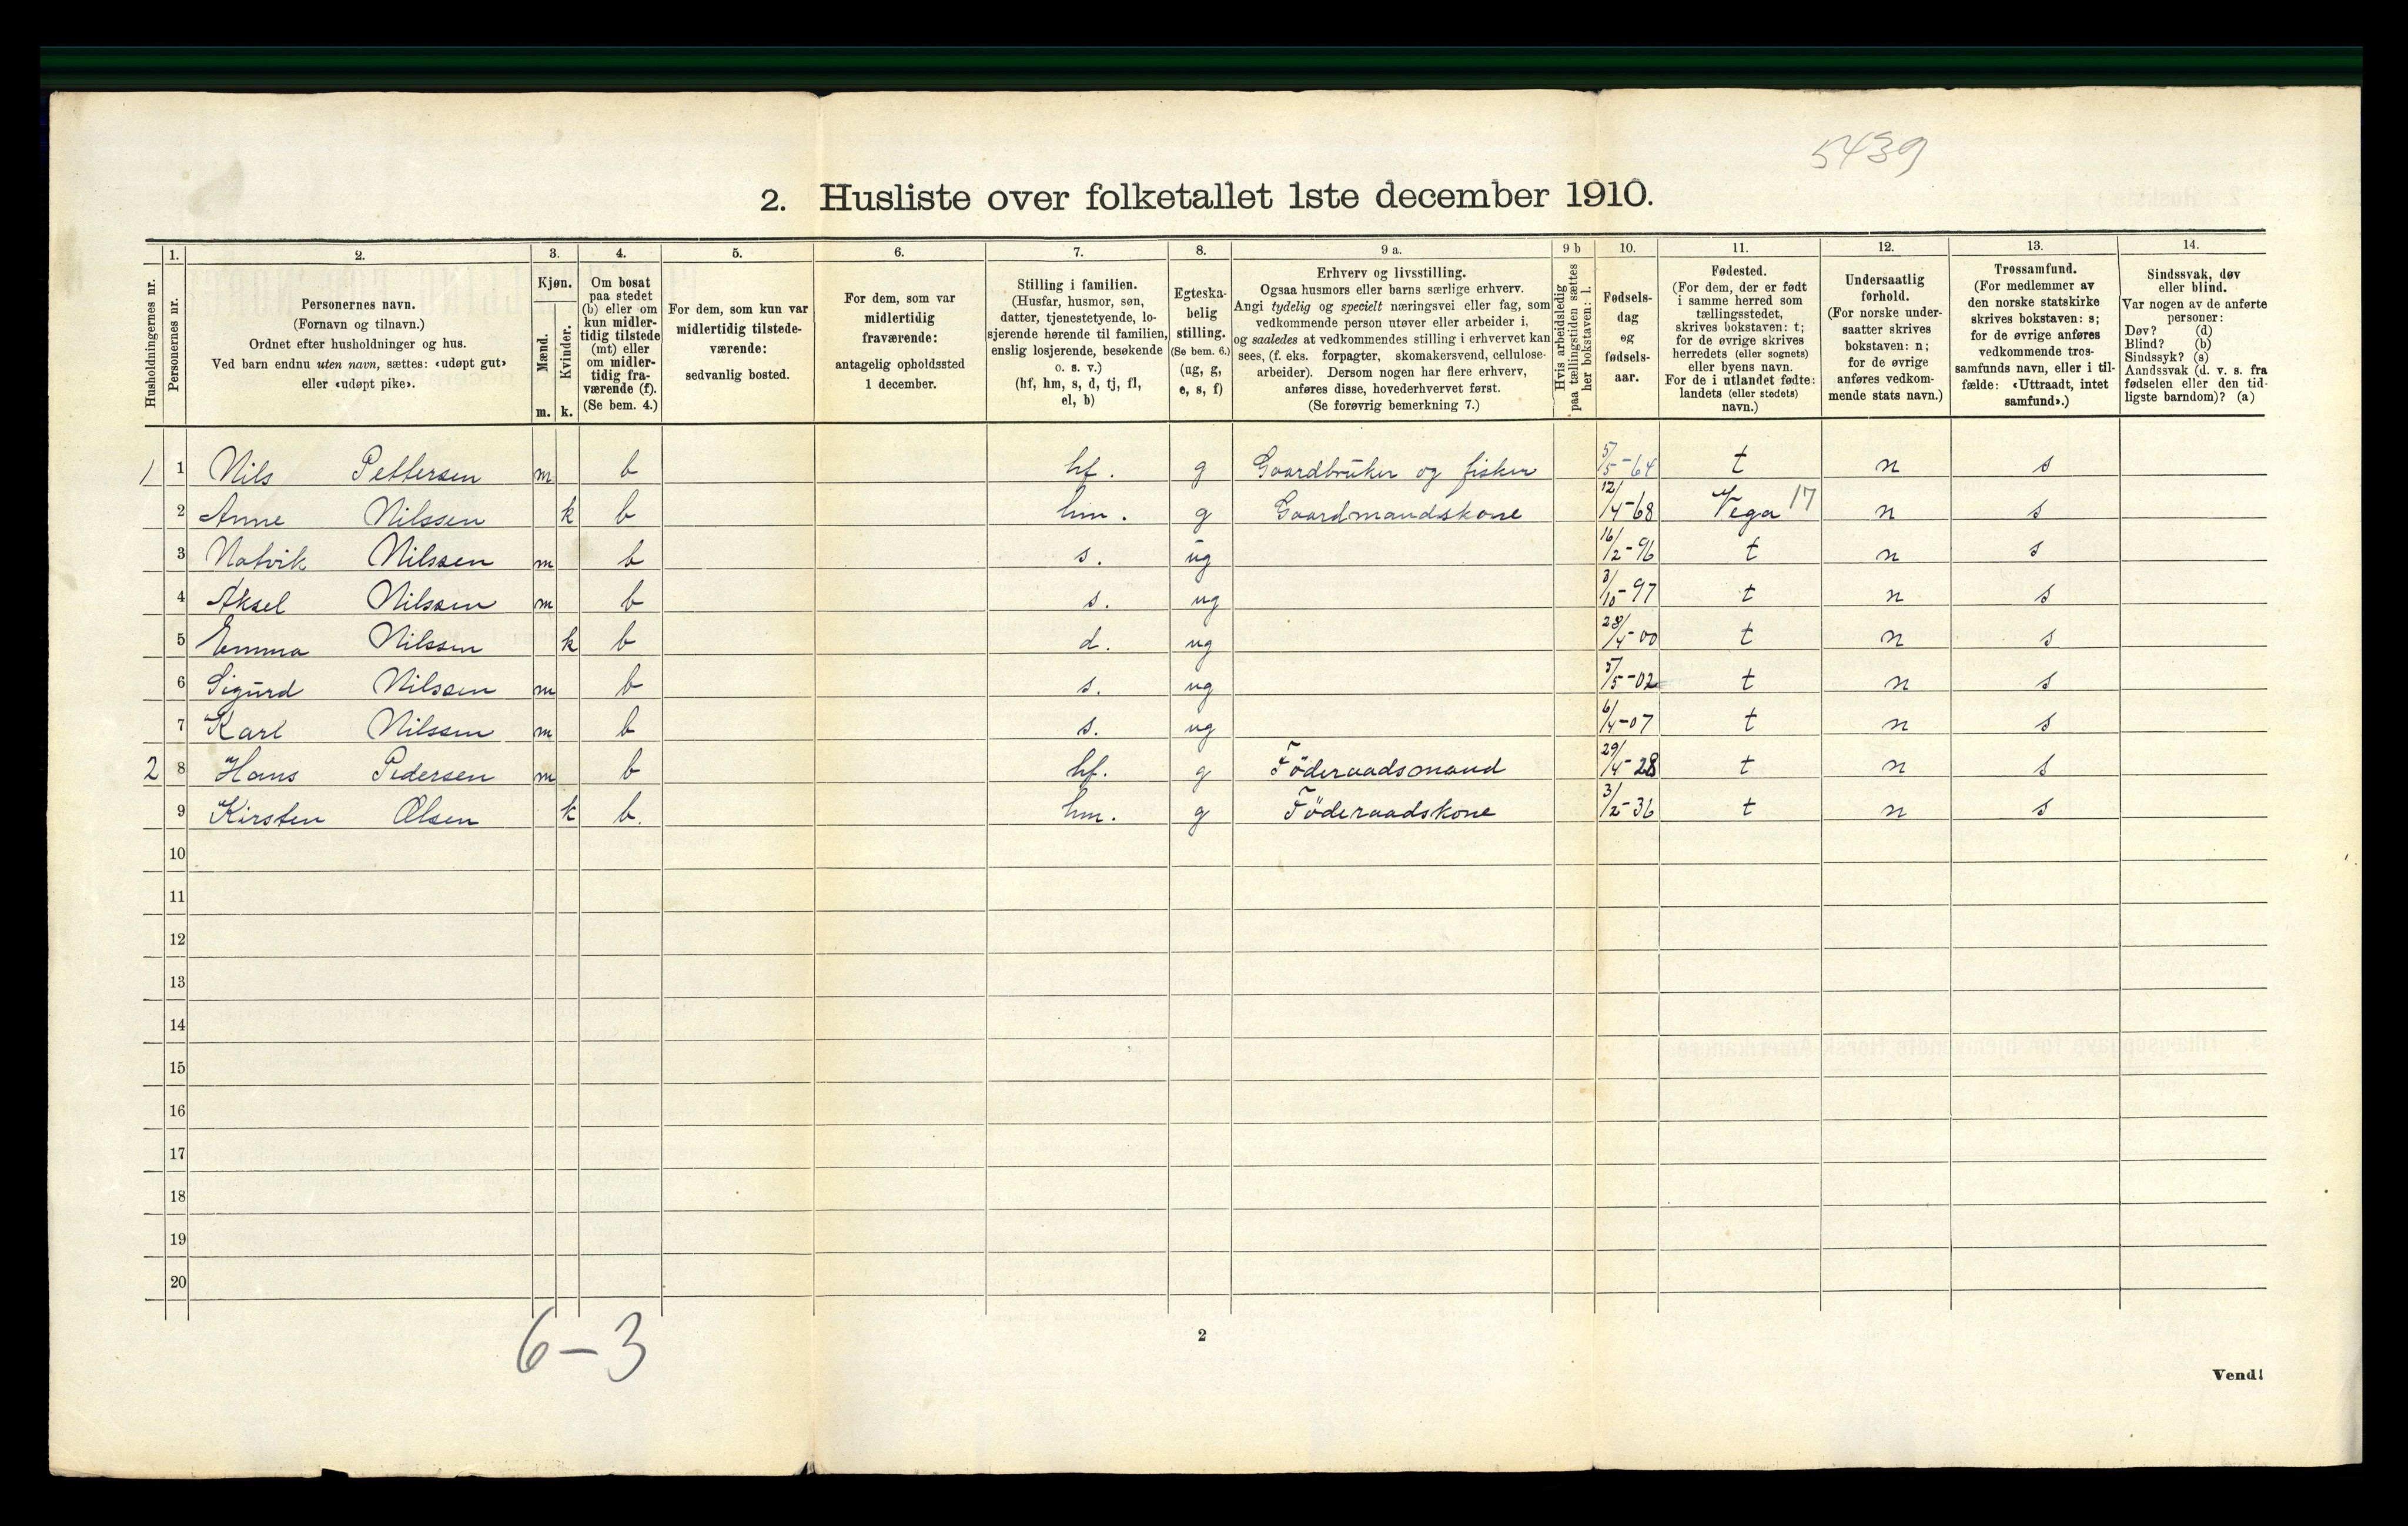 5439
2. Husliste over folketallet 1ste december 1910.
Husholdningernes nr.
1.
Personernes nr.
2.
Personernes navn.
(Fornavn og tilnavn.)
Ordnet efter husholdninger og hus.
Ved barn endnu uten navn, sættes: «udøpt gut»
eller «udøpt pike».
3.
Kjøn.
Mænd.
m.
Kvinder.
k.
4.
Om bosat
paa stedet
(b) eller om
kun midler-
tidig tilstede
(mt) eller
om midler-
tidig fra-
værende (f).
(Se bem. 4.)
5.
For dem, som kun var
midlertidig tilstede-
værende:
sedvanlig bosted.
6.
For dem, som var
midlertidig
fraværende:
antagelig opholdssted
1 december.
7.
Stilling i familien.
(Husfar, husmor, søn,
datter, tjenestetyende, lo-
sjerende hørende til familien,
enslig losjerende, besøkende
o. s. v.)
(hf, hm, s, d, tj, fl,
el, b)
8.
Egteska-
belig
stilling.
(Se bem. 6.)
(ug, g,
e, s, f)
9 a.
Erhverv og livsstilling.
Ogsaa husmors eller barns særlige erhverv.
Angi tydelig og specielt næringsvei eller fag, som
vedkommende person utøver eller arbeider i,
og saaledes at vedkommendes stilling i erhvervet kan
sees, (f. eks. forpagter, skomakersvend, cellulose-
arbeider). Dersom nogen har flere erhverv,
anføres disse, hovederhvervet først.
(Se forøvrig bemerkning 7.)
9 b
Hvis arbeidsledig
paa tællingstiden sættes
her bokstaven: l.
10.
Fødsels-
dag
og
fødsels-
aar.
11.
Fødested.
(For dem, der er født
i samme herred som
tællingsstedet,
skrives bokstaven: t;
for de øvrige skrives
herredets (eller sognets)
eller byens navn.
For de i utlandet fødte:
landets (eller stedets)
navn.)
12.
Undersaatlig
forhold.
(For norske under-
saatter skrives
bokstaven: n;
for de øvrige
anføres vedkom-
mende stats navn.)
13.
Trossamfund.
(For medlemmer av
den norske statskirke
skrives bokstaven: s;
for de øvrige anføres
vedkommende tros-
samfunds navn, eller i til-
fælde: «Uttraadt, intet
samfund».)
14.
Sindssvak, døv
eller blind.
Var nogen av de anførte
personer:
Døv? (d)
Blind? (b)
Sindssyk? (s)
Aandssvak (d. v. s. fra
fødselen eller den tid-
ligste barndom)? (a)
1 1 Nils Pettersen m b hf. g Gaardbruker og fisker 5/5-64 t n s
2 Anne Nilssen k b hm. g Gaardmandskone 12/4-68 Vega 17 n s
3 Notvik Nilssen m b s. ug 16/2-96 t n s
4 Aksel Nilssen m b s. ug 3/10-97 t n s
5 Emma Nilssen k b d. ug 28/4-00 t n s
6 Sigurd Nilssen m b s. ug 5/5-02 t n s
7 Karl Nilssen m b s. ug 6/4-07 t n s
2 8 Hans Pedersen m b hf. g Föderaadsmand 29/4-28 t n s
9 Kirsten Olsen k b. hm. g Föderaadskone 3/2-36 t n s
10
11
12
13
14
15
16
17
18
19
20
6-3
2
Vend!